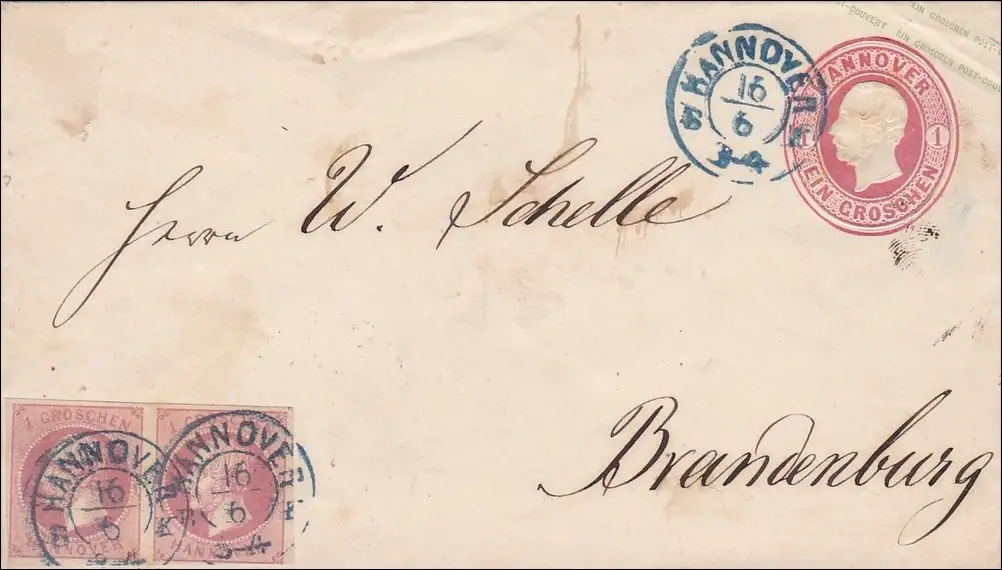 EIN GROSCHEN POST-COUVERT
EIN GROSCHEN POST-COUVERT
HANNOVER
16
6
3-4
HANNOVER
1 1
EIN GROSCHEN
Herrn W. Schelle
Brandenburg
1 GROSCHEN
HANNOVER
HANNOVER
16
6
3-4
HANNOVER
HANNOVER
16
6
3-4